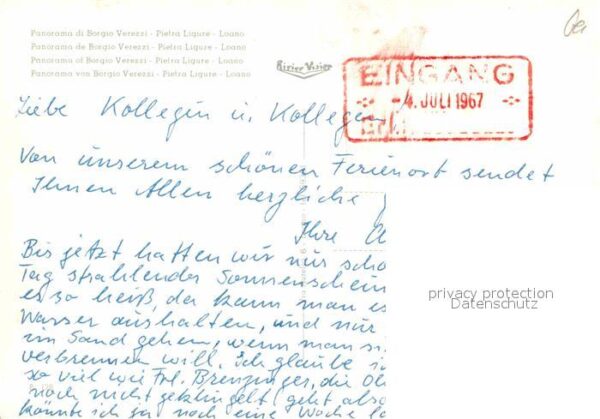 Panorama di Borgio Verezzi - Pietra Ligure - Loano
Panorama de Borgio Verezzi - Pietra Ligure - Loano
Panorama of Borgio Verezzi - Pietra Ligure - Loano
Panorama von Borgio Verezzi - Pietra Ligure - Loano
EINGANG
-4. JULI 1967
Liebe Kollegin u. Kollegen,
Von unserem schönen Ferienort sendet
Ihnen Allen herzliche
Ihre
Bis jetzt hatten wir nur
Tag strahlenden Sonnenschein
es so heiß, da kann man es
Wasser aushalten, und nur
im Sand gehen, wenn man
verbrennen will. Ich glaube
so viel wie Frl. Brenzinger, die
noch nicht geklingelt, geht also
könnte ich ja noch eine Woche
privacy protection
Datenschutz